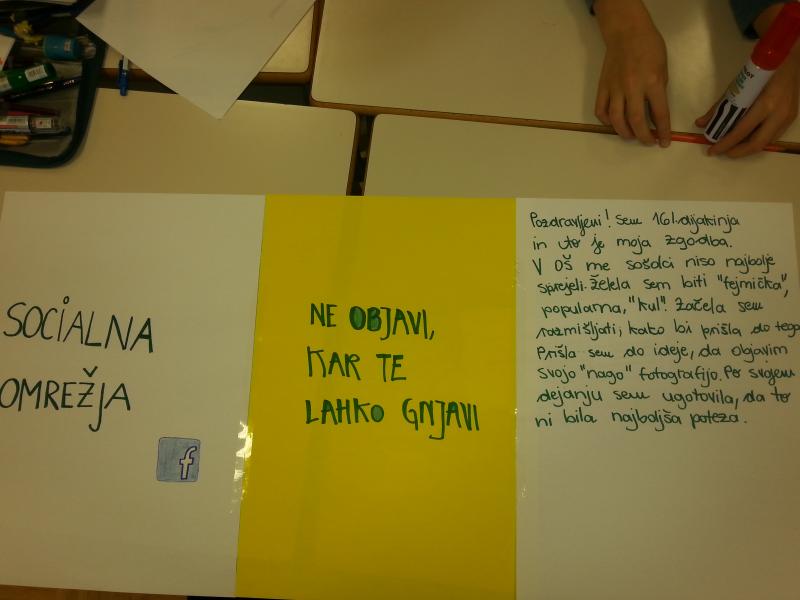 SOCIALNA
OMREŽJA
f
NE OBJAVI,
KAR TE
LAHKO GNJAVI
Pozdravljeni! Sem 16l. dijakinja
in to je moja zgodba.
V OŠ me sošolci niso najbolje
sprejeli. Želela sem biti "fejmička",
popularna, "kul". Začela sem
razmišljati, kako bi prišla do tega.
Prišla sem do ideje, da objavim
svojo "nago" fotografijo. Po svojem
dejanju sem ugotovila, da to
ni bila najboljša poteza.